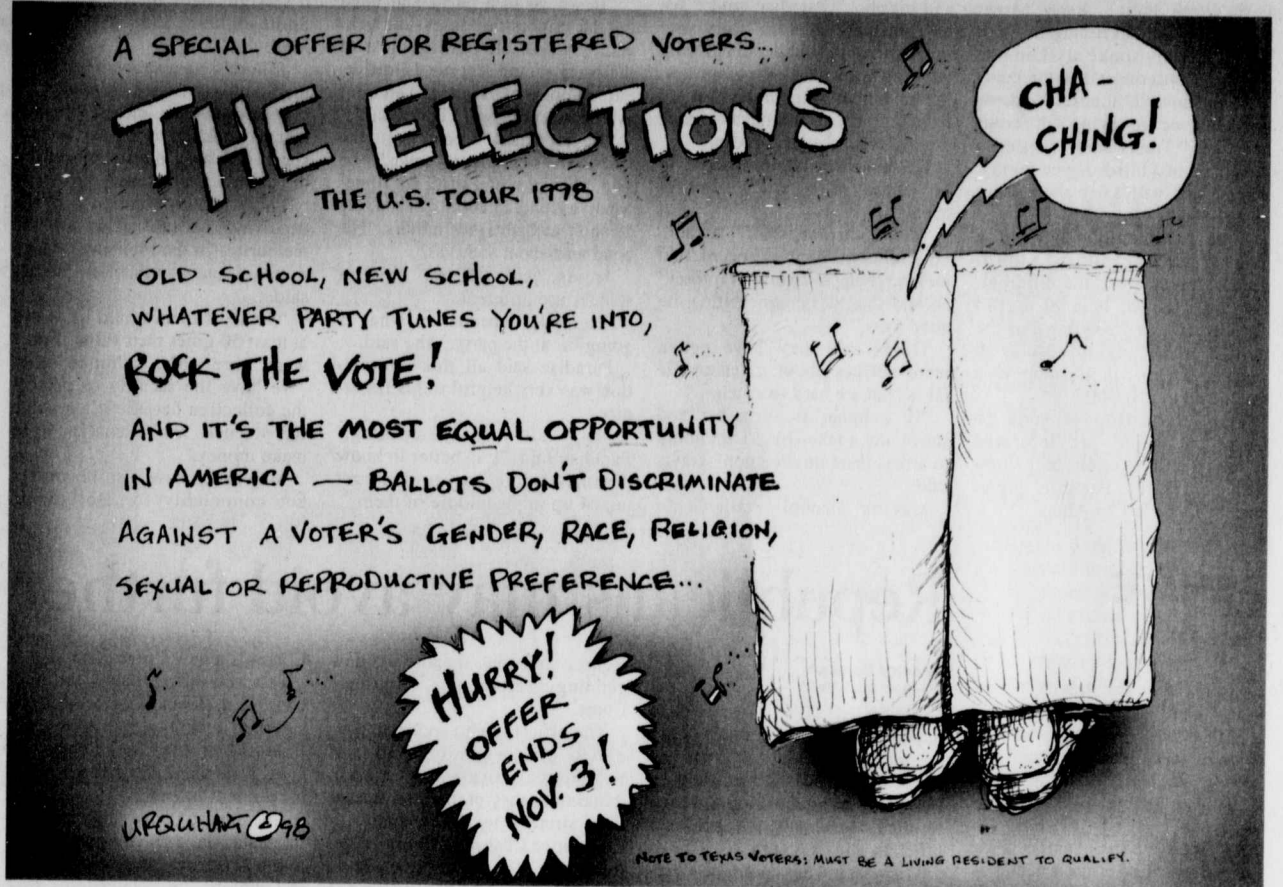 A SPECIAL OFFER FOR REGISTERED VOTERS...
THE ELECTIONS
THE U.S. TOUR 1998
CHA-
CHING!
OLD SCHOOL, NEW SCHOOL,
WHATEVER PARTY TUNES YOU'RE INTO,
ROCK THE VOTE!
AND IT'S THE MOST EQUAL OPPORTUNITY
IN AMERICA — BALLOTS DON'T DISCRIMINATE
AGAINST A VOTER'S GENDER, RACE, RELIGION,
SEXUAL OR REPRODUCTIVE PREFERENCE...
HURRY!
OFFER
ENDS
NOV. 3!
URQUHART © 98
NOTE TO TEXAS VOTERS: MUST BE A LIVING RESIDENT TO QUALIFY.